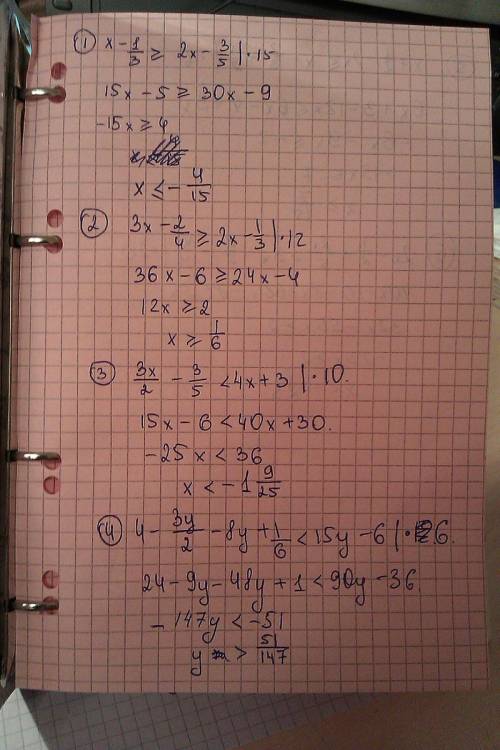 ① x - 1/3 ≥ 2x - 3/5 | · 15
15x - 5 ≥ 30x - 9
-15x ≥ 4
x ≤ - 4/15
② 3x - 2/4 ≥ 2x - 1/3 | · 12
36x - 6 ≥ 24x - 4
12x ≥ 2
x ≥ 1/6
③ 3x/2 - 3/5 < 4x + 3 | · 10.
15x - 6 < 40x + 30.
-25x < 36
x < -1 9/25
④ 4 - 3y/2 - 8y + 1/6 < 15y - 6 | · 6.
24 - 9y - 48y + 1 < 90y - 36.
- 147y < -51
y > 51/147